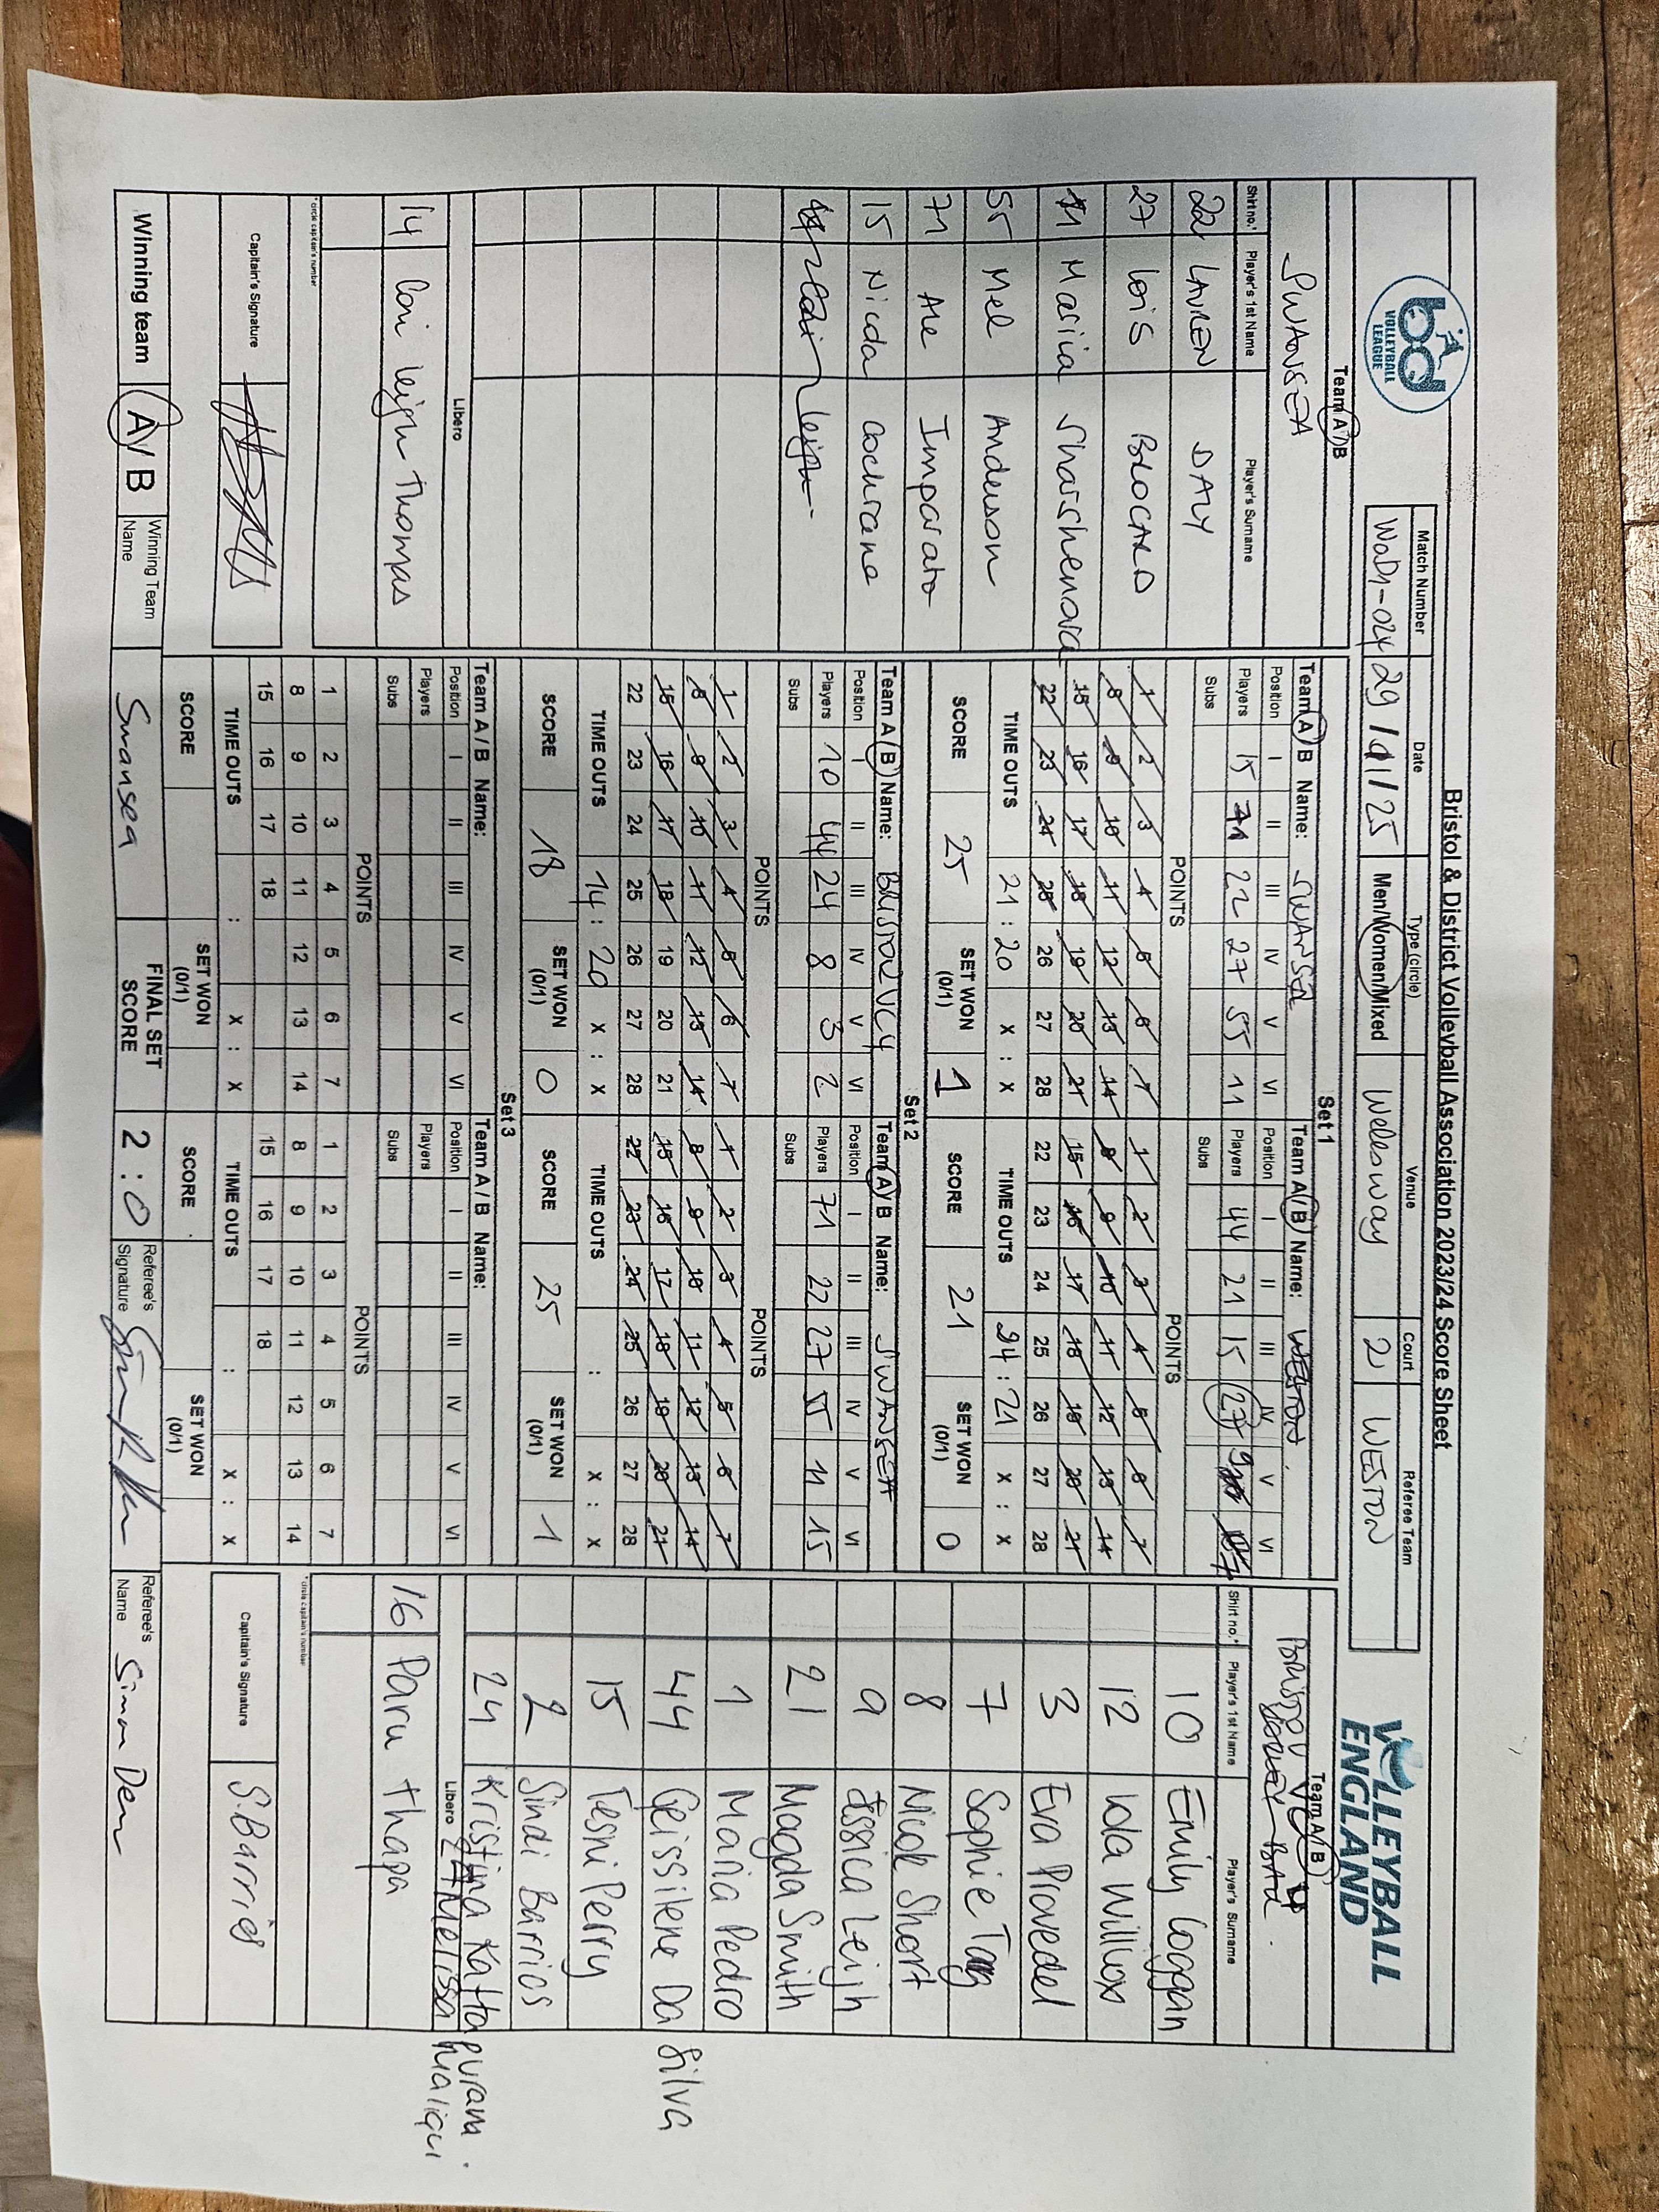 Bristol & District Volleyball Association 2023/24 Score Sheet
bd
VOLLEYBALL
LEAGUE
VOLLEYBALL
ENGLAND
Match Number Date Type (circle) Venue Court Referee Team
WaD1-024 29/11/25 Men/Women/Mixed Wellsway 2 WESTON
Team A / B
SWANSEA
Shirt no.* Player's 1st Name Player's Surname
22 LAUREN DALY
27 Lois BLOCARD
11 Mariia Sharshenova
55 Mel Anderson
71 Ale Imparato
15 Nicola Cochrane
Leigh
Libero
14 Cori Leigh Thomas
*circle captain's number
Captain's Signature
Set 1
Team A / B Name: SWANSEA
Position I II III IV V VI
Players 15 71 22 27 55 11
Subs
POINTS
1 2 3 4 5 6 7
8 9 10 11 12 13 14
15 16 17 18 19 20 21
22 23 24 25 26 27 28
TIME OUTS 21 : 20 X : X
SCORE 25 SET WON (0/1) 1
Team A / B Name: WESTON
Position I II III IV V VI
Players 44 21 15 27 9
Subs
POINTS
1 2 3 4 5 6 7
8 9 10 11 12 13 14
15 16 17 18 19 20 21
22 23 24 25 26 27 28
TIME OUTS 24 : 21 X : X
SCORE 21 SET WON (0/1) 0
Set 2
Team A / B Name: BRISTOL VC4
Position I II III IV V VI
Players 10 44 24 8 3 2
Subs
POINTS
1 2 3 4 5 6 7
8 9 10 11 12 13 14
15 16 17 18 19 20 21
22 23 24 25 26 27 28
TIME OUTS 14 : 20 X : X
SCORE 18 SET WON (0/1) 0
Team A / B Name: SWANSEA
Position I II III IV V VI
Players 71 22 27 55 11 15
Subs
POINTS
1 2 3 4 5 6 7
8 9 10 11 12 13 14
15 16 17 18 19 20 21
22 23 24 25 26 27 28
TIME OUTS : X : X
SCORE 25 SET WON (0/1) 1
Set 3
Team A / B Name:
Position I II III IV V VI
Players
Subs
POINTS
1 2 3 4 5 6 7
8 9 10 11 12 13 14
15 16 17 18
TIME OUTS : X : X
SCORE SET WON (0/1)
Team A / B Name:
Position I II III IV V VI
Players
Subs
POINTS
1 2 3 4 5 6 7
8 9 10 11 12 13 14
15 16 17 18
TIME OUTS : X : X
SCORE SET WON (0/1)
Team A / B
BRISTOL VC4
Shirt no.* Player's 1st Name Player's Surname
10 Emily Coggan
12 Iola Willux
3 Eva Piovedel
7 Sophie Tang
8 Nicole Short
9 Jessica Leigh
21 Magda Smith
1 Maria Pedro
44 Geissilene Da Silva
15 Tesni Perry
2 Sindi Barrios
24 Kristina Kattapuram
Libero Melissa
16 Paru Thapa
*circle captain's number
Captain's Signature S.Barrios
Winning team A / B Winning Team Name Swansea FINAL SET SCORE 2 : 0 Referee's Signature Referee's Name Simon Den